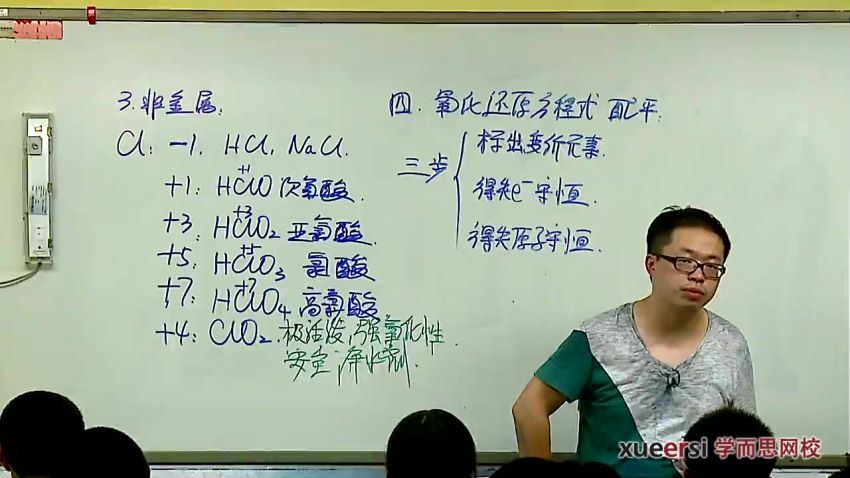 3.非金属.
Cl: -1. HCl. NaCl.
+1: HClO 次氯酸
+1
+3: HClO2 亚氯酸.
+3
+5: HClO3 氯酸
+5
+7: HClO4 高氯酸
+7
+4: ClO2. 极活泼,强氧化性.
安全净水剂.
四. 氧化还原方程式 配平.
三步
标出变价元素.
得失e-守恒
得失原子守恒.
xueersi 学而思网校